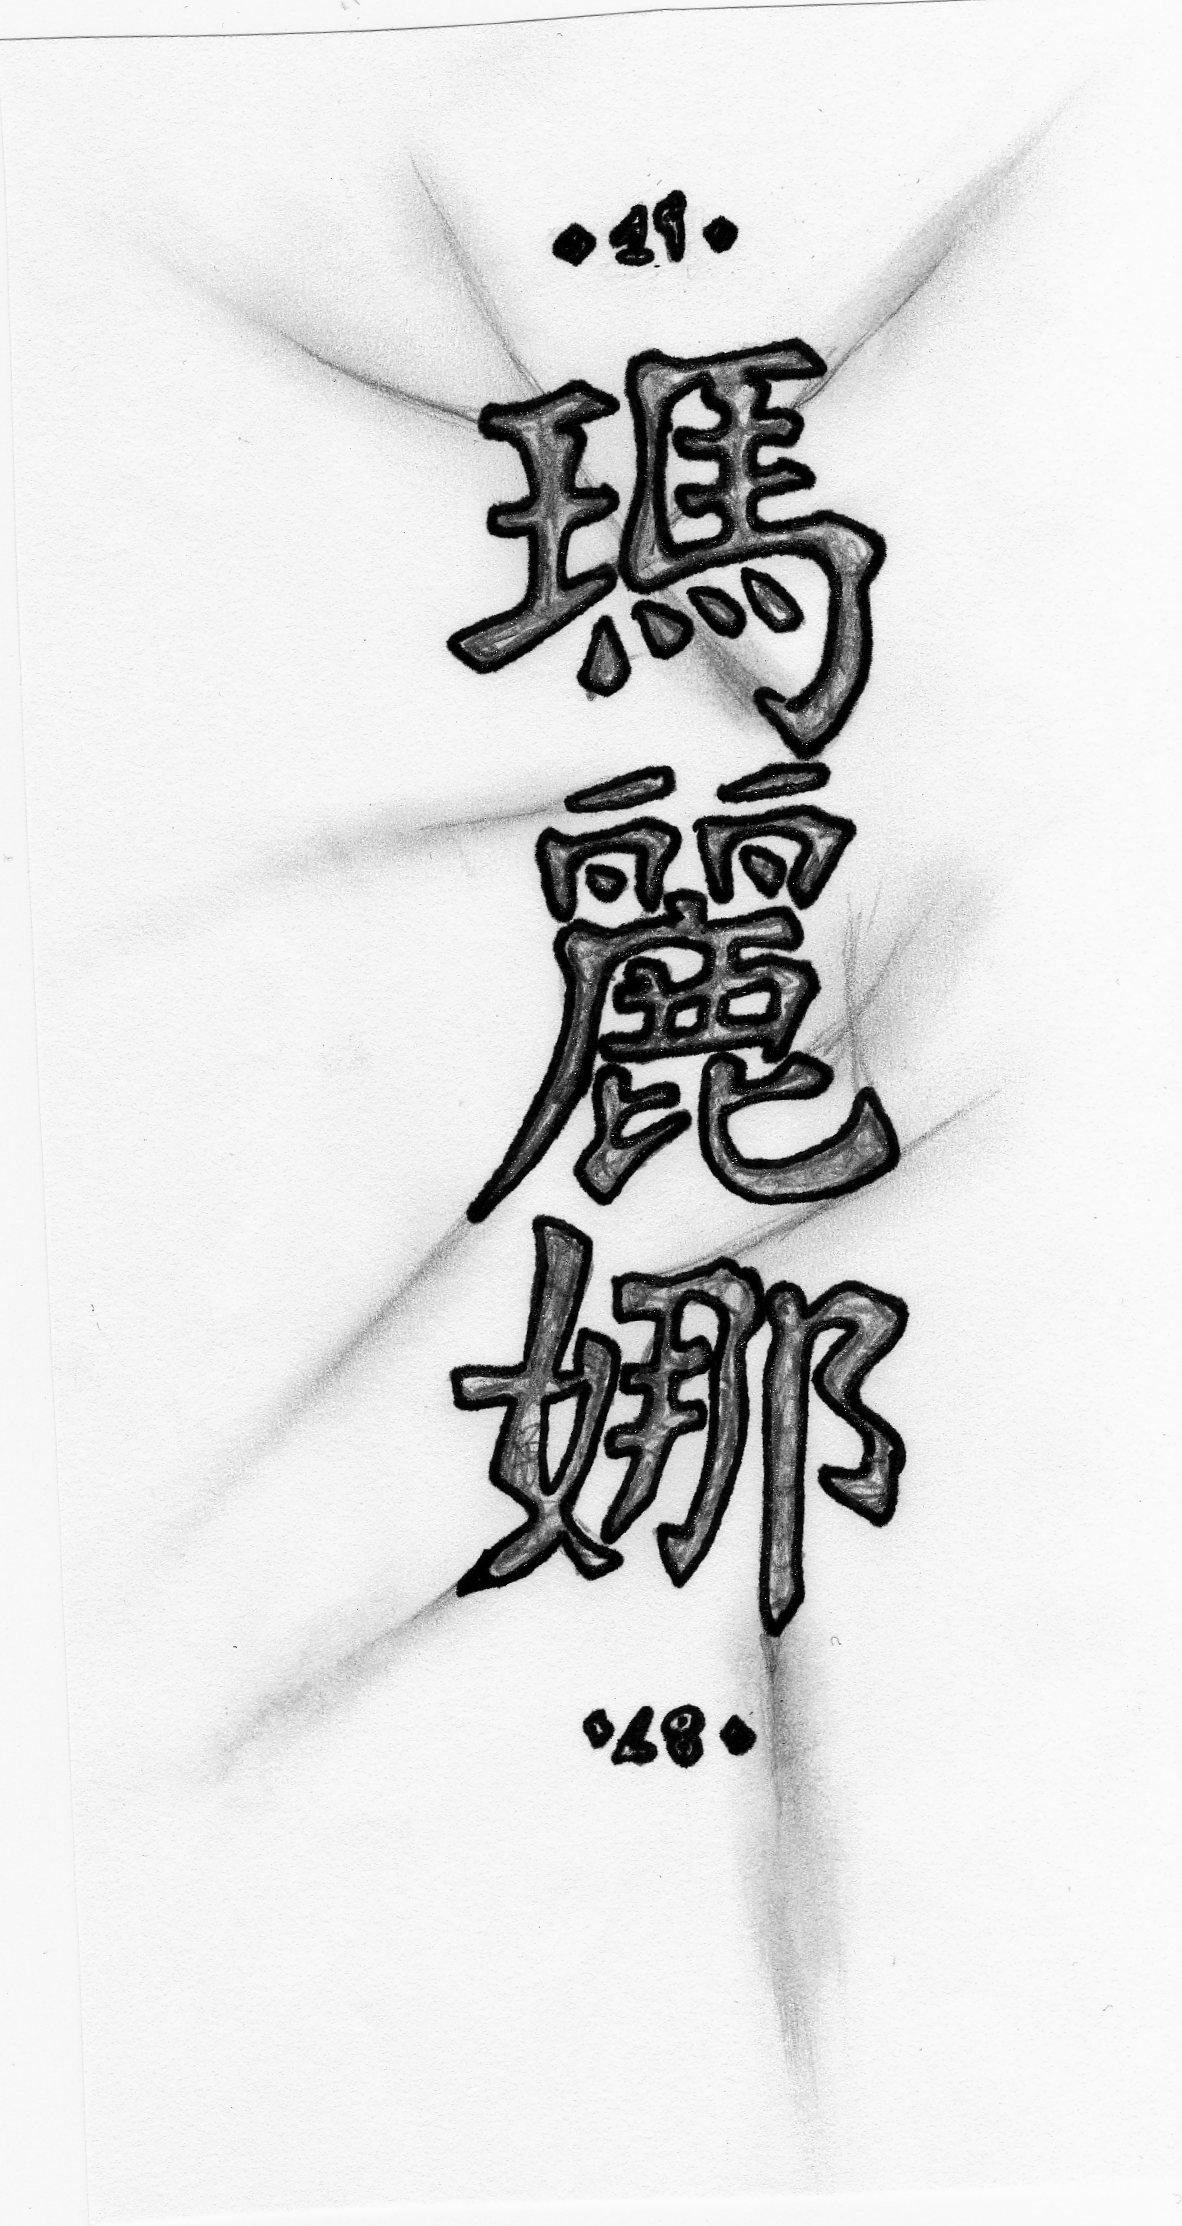 19
瑪
麗
娜
18